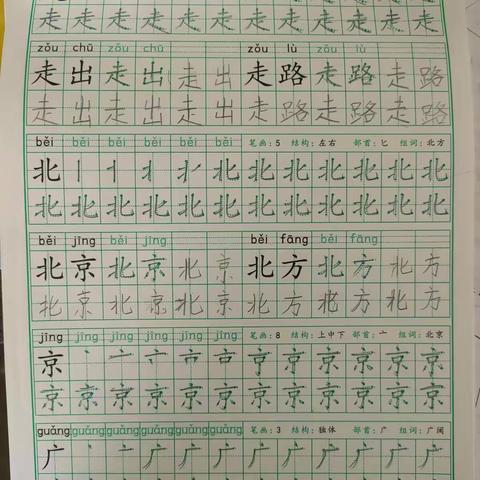 走 走 走 走 走 走 走 走 走 走 走 走
zǒu chū zǒu chū zǒu lù zǒu lù
走 出 走 出 走 出 走 路 走 路 走 路
走 出 走 出 走 出 走 路 走 路 走 路
běi běi běi běi běi běi 笔画:5 结构:左右 部首:匕 组词:北方
北 北 北 北 北 北 北 北
北 北 北 北 北 北 北 北 北 北 北 北
běi jīng běi jīng běi fāng běi fāng
北 京 北 京 北 京 北 方 北 方 北 方
北 京 北 京 北 京 北 方 北 方 北 方
jīng jīng jīng jīng jīng jīng 笔画:8 结构:上中下 部首:亠 组词:北京
京 京 京 京 京
京 京 京 京 京 京 京 京 京 京 京 京
guǎng guǎng guǎng guǎng guǎng guǎng 笔画:3 结构:独体 部首:广 组词:广阔
广 广 广 广 广 广 广 广 广 广